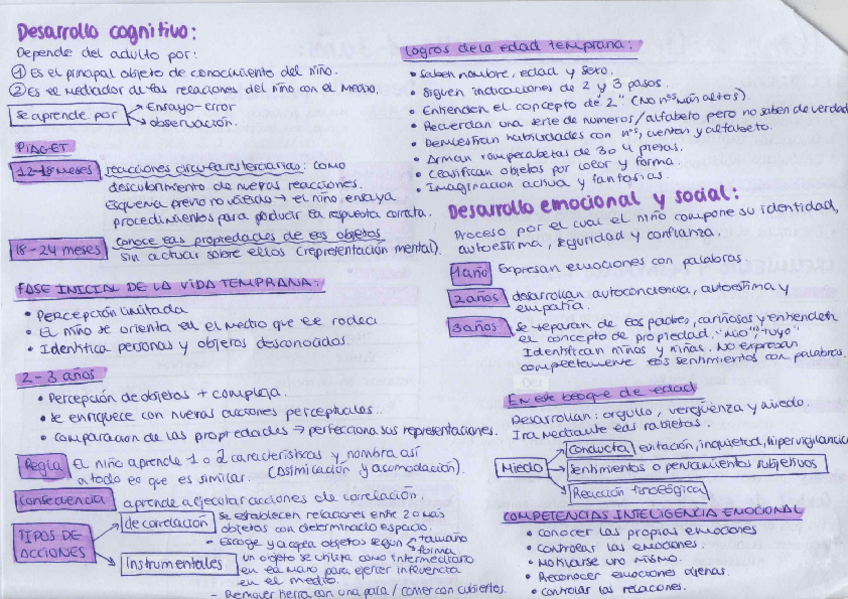 Desarrollo cognitivo:
Depende del adulto por:
① Es el principal objeto de conocimiento del niño.
② Es el mediador de las relaciones del niño con el medio.
Se aprende por → Ensayo-error
→ observación.
PIAGET
12-18 meses reacciones circulares terciarias: como
descubrimiento de nuevas reacciones.
Esquema previo no válido → el niño ensaya
procedimientos para producir la respuesta correcta.
18-24 meses conoce las propiedades de los objetos
sin actuar sobre ellos (representación mental).
FASE INICIAL DE LA VIDA TEMPRANA:
• Percepción limitada
• El niño se orienta en el medio que le rodea
• Identifica personas y objetos desconocidos.
2-3 años
• Percepción de objetos + compleja.
• Se enriquece con nuevas acciones perceptuales.
• Comparación de las propiedades → perfecciona sus representaciones.
Regla El niño aprende 1 o 2 características y nombra así
a todo lo que es similar. (Asimilación y acomodación).
Consecuencia aprende a ejecutar acciones de correlación.
TIPOS DE ACCIONES
de correlación se establecen relaciones entre 2 o más
objetos con determinado espacio.
• Escoge y acopla objetos según → tamaño
→ forma
Instrumentales un objeto se utiliza como intermediario
en la mano para ejercer influencia
en el medio.
- Remover tierra con una pala / comer con cubiertos.
Logros de la edad temprana:
• Saben nombre, edad y sexo.
• Siguen indicaciones de 2 y 3 pasos.
• Entienden el concepto de "2" (No nºs más altos).
• Recuerdan una serie de numeros/alfabeto pero no saben de verdad
• Demuestran habilidades con nºs, cuentan y alfabeto.
• Arman rompecabezas de 3 o 4 piezas.
• Clasifican objetos por color y forma.
• Imaginación activa y fantasías.
Desarrollo emocional y social:
Proceso por el cual el niño compone su identidad,
autoestima, seguridad y confianza.
1 año Expresan emociones con palabras.
2 años desarrollan autoconciencia, autoestima y
empatía.
3 años se separan de los padres, cariñosos y entienden
el concepto de propiedad, "mío", "tuyo"
Identifican niños y niñas. No expresan
completamente los sentimientos con palabras.
En este bloque de edad
Desarrollan: orgullo, vergüenza y miedo.
Ira mediante las rabietas.
Miedo
Conducta evitación, inquietud, hipervigilancia
Sentimientos o pensamientos subjetivos
Reacción fisiológica
COMPETENCIAS INTELIGENCIA EMOCIONAL
• Conocer las propias emociones
• Controlar las emociones.
• Motivarse uno mismo.
• Reconocer emociones ajenas.
• Controlar las relaciones.